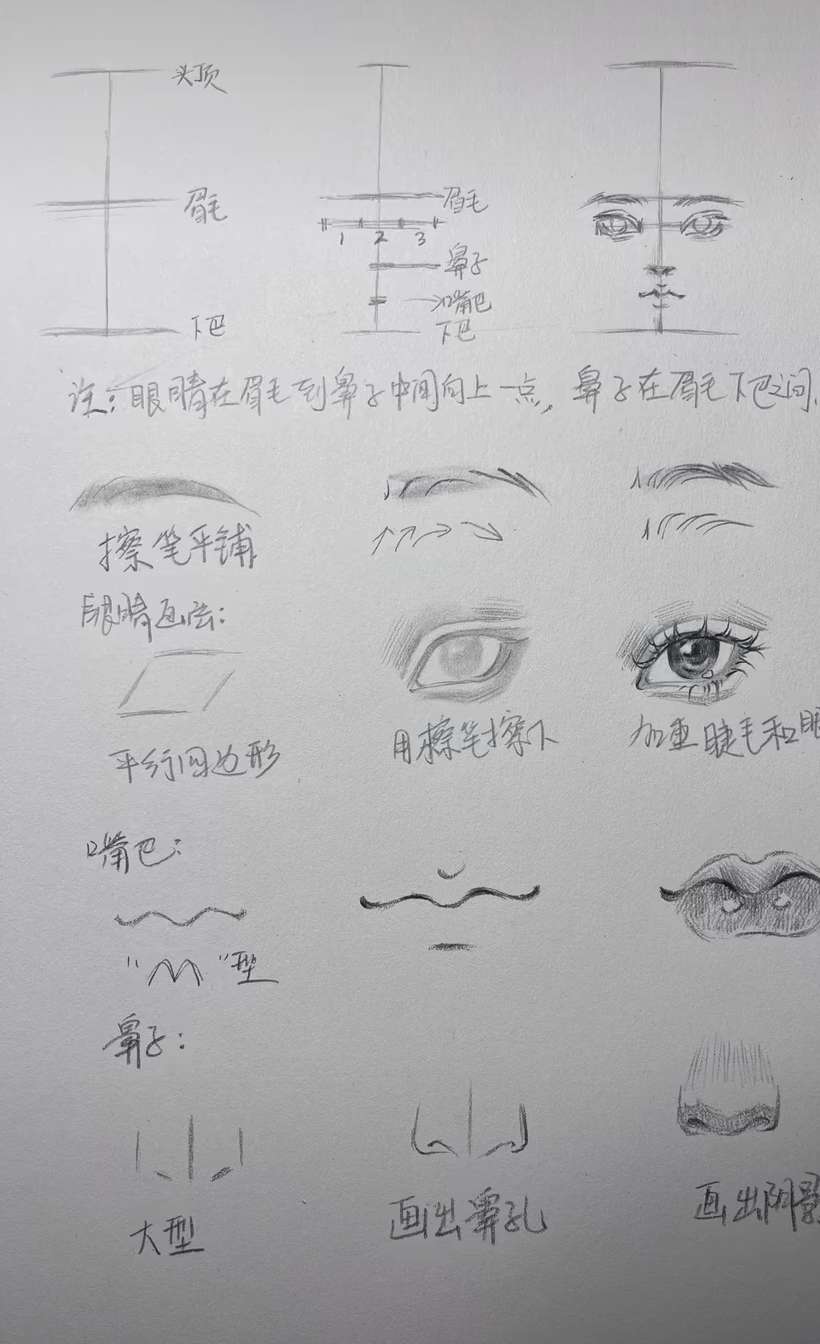 头顶
眉毛
下巴
眉毛
1 2 3
鼻子
嘴巴
下巴
注：眼睛在眉毛到鼻子中间向上一点，鼻子在眉毛下巴之间.
擦笔平铺
眼睛画法：
平行四边形
用擦笔擦下
加重睫毛和眼
嘴巴：
"M"型
鼻子：
大型
画出鼻孔
画出阴影